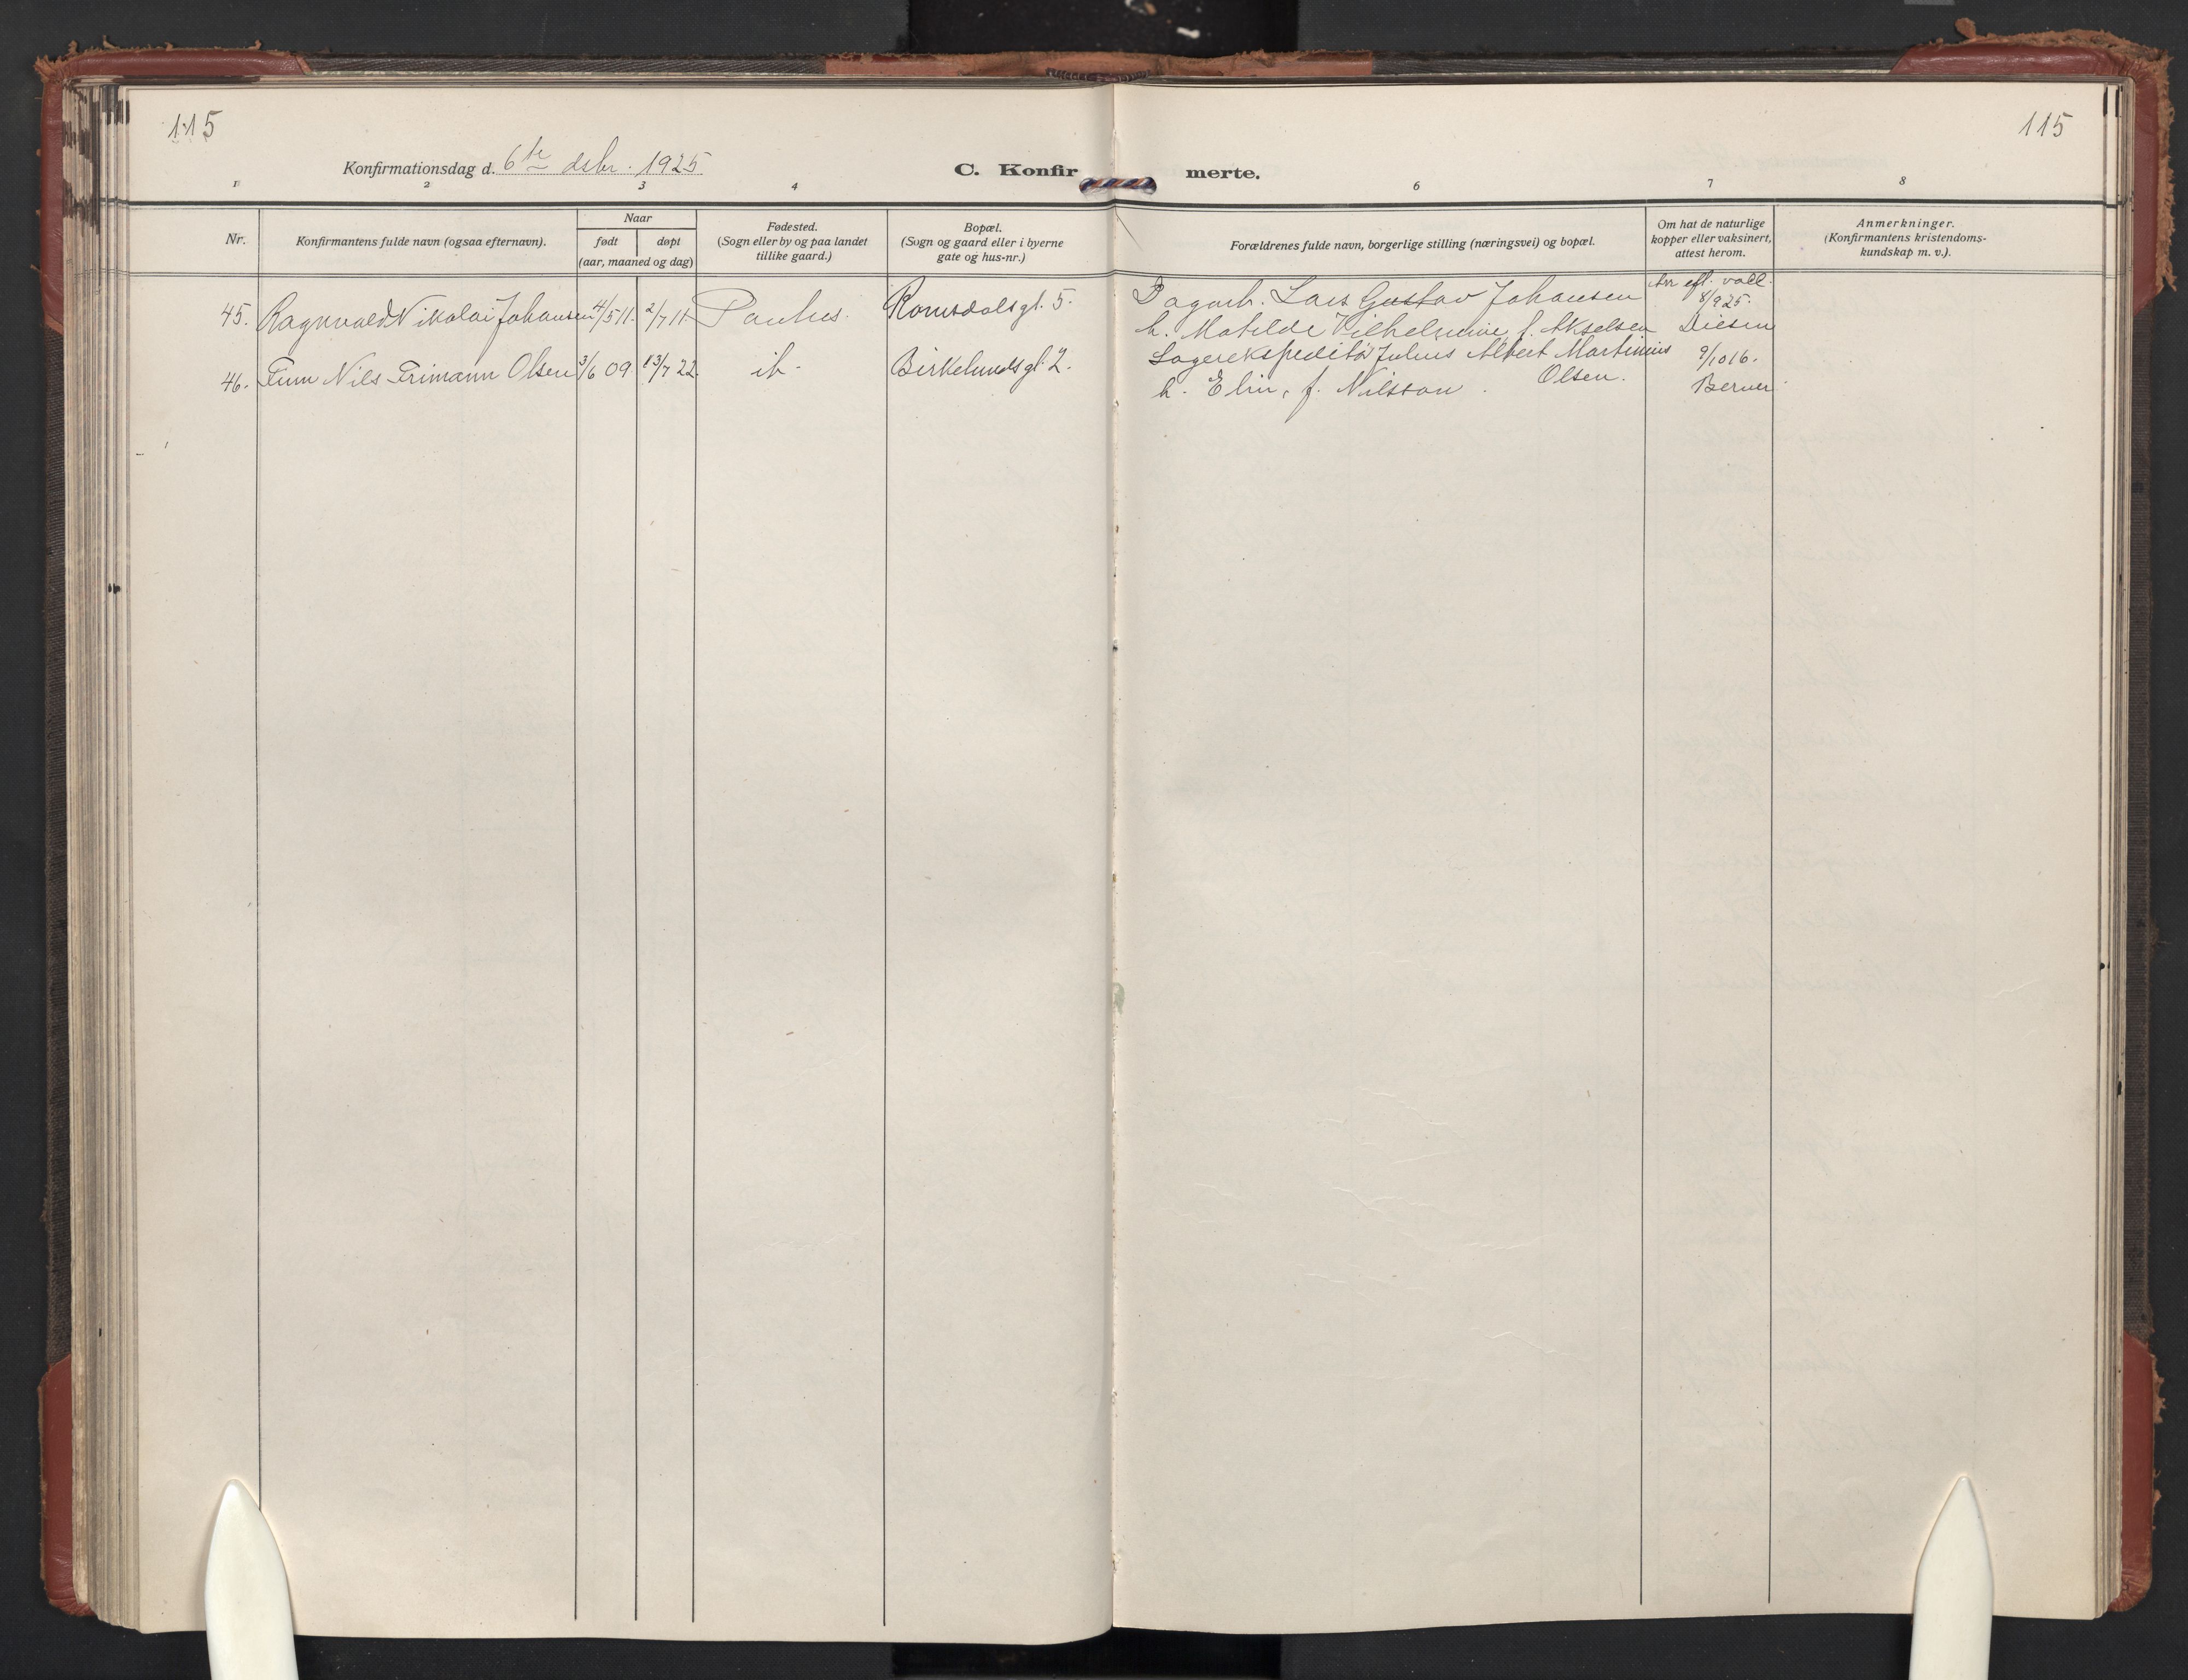 115
115
Konfirmationsdag d. 6te dsbr. 1925
C. Konfir merte.
1 2 3 4 6 7 8
Nr.
Konfirmantens fulde navn (ogsaa efternavn).
Naar
født døpt
(aar, maaned og dag)
Fødested.
(Sogn eller by og paa landet
tillike gaard.)
Bopæl.
(Sogn og gaard eller i byerne
gate og hus-nr.)
Forældrenes fulde navn, borgerlige stilling (næringsvei) og bopæl.
Om hat de naturlige
kopper eller vaksinert,
attest herom.
Anmerkninger.
(Konfirmantens kristendoms-
kundskap m. v.).
45. Ragnvald Nikolai Johansen 4/5 11. 2/7 11. Paulus. Romsdalsgt. 5.
Dagarb. Lars Gustav Johansen
h. Matilde Vilhelmine, f. Akselsen
8/9 25.
Diesen
46. Finn Nils Frimann Olsen 3/6 09 13/7 22. ib. Birkelundsgt. 2.
Lagerekspeditør Julius Albert Martinius
Olsen.
h. Elin, f. Nilsson.
9/10 16.
Berner